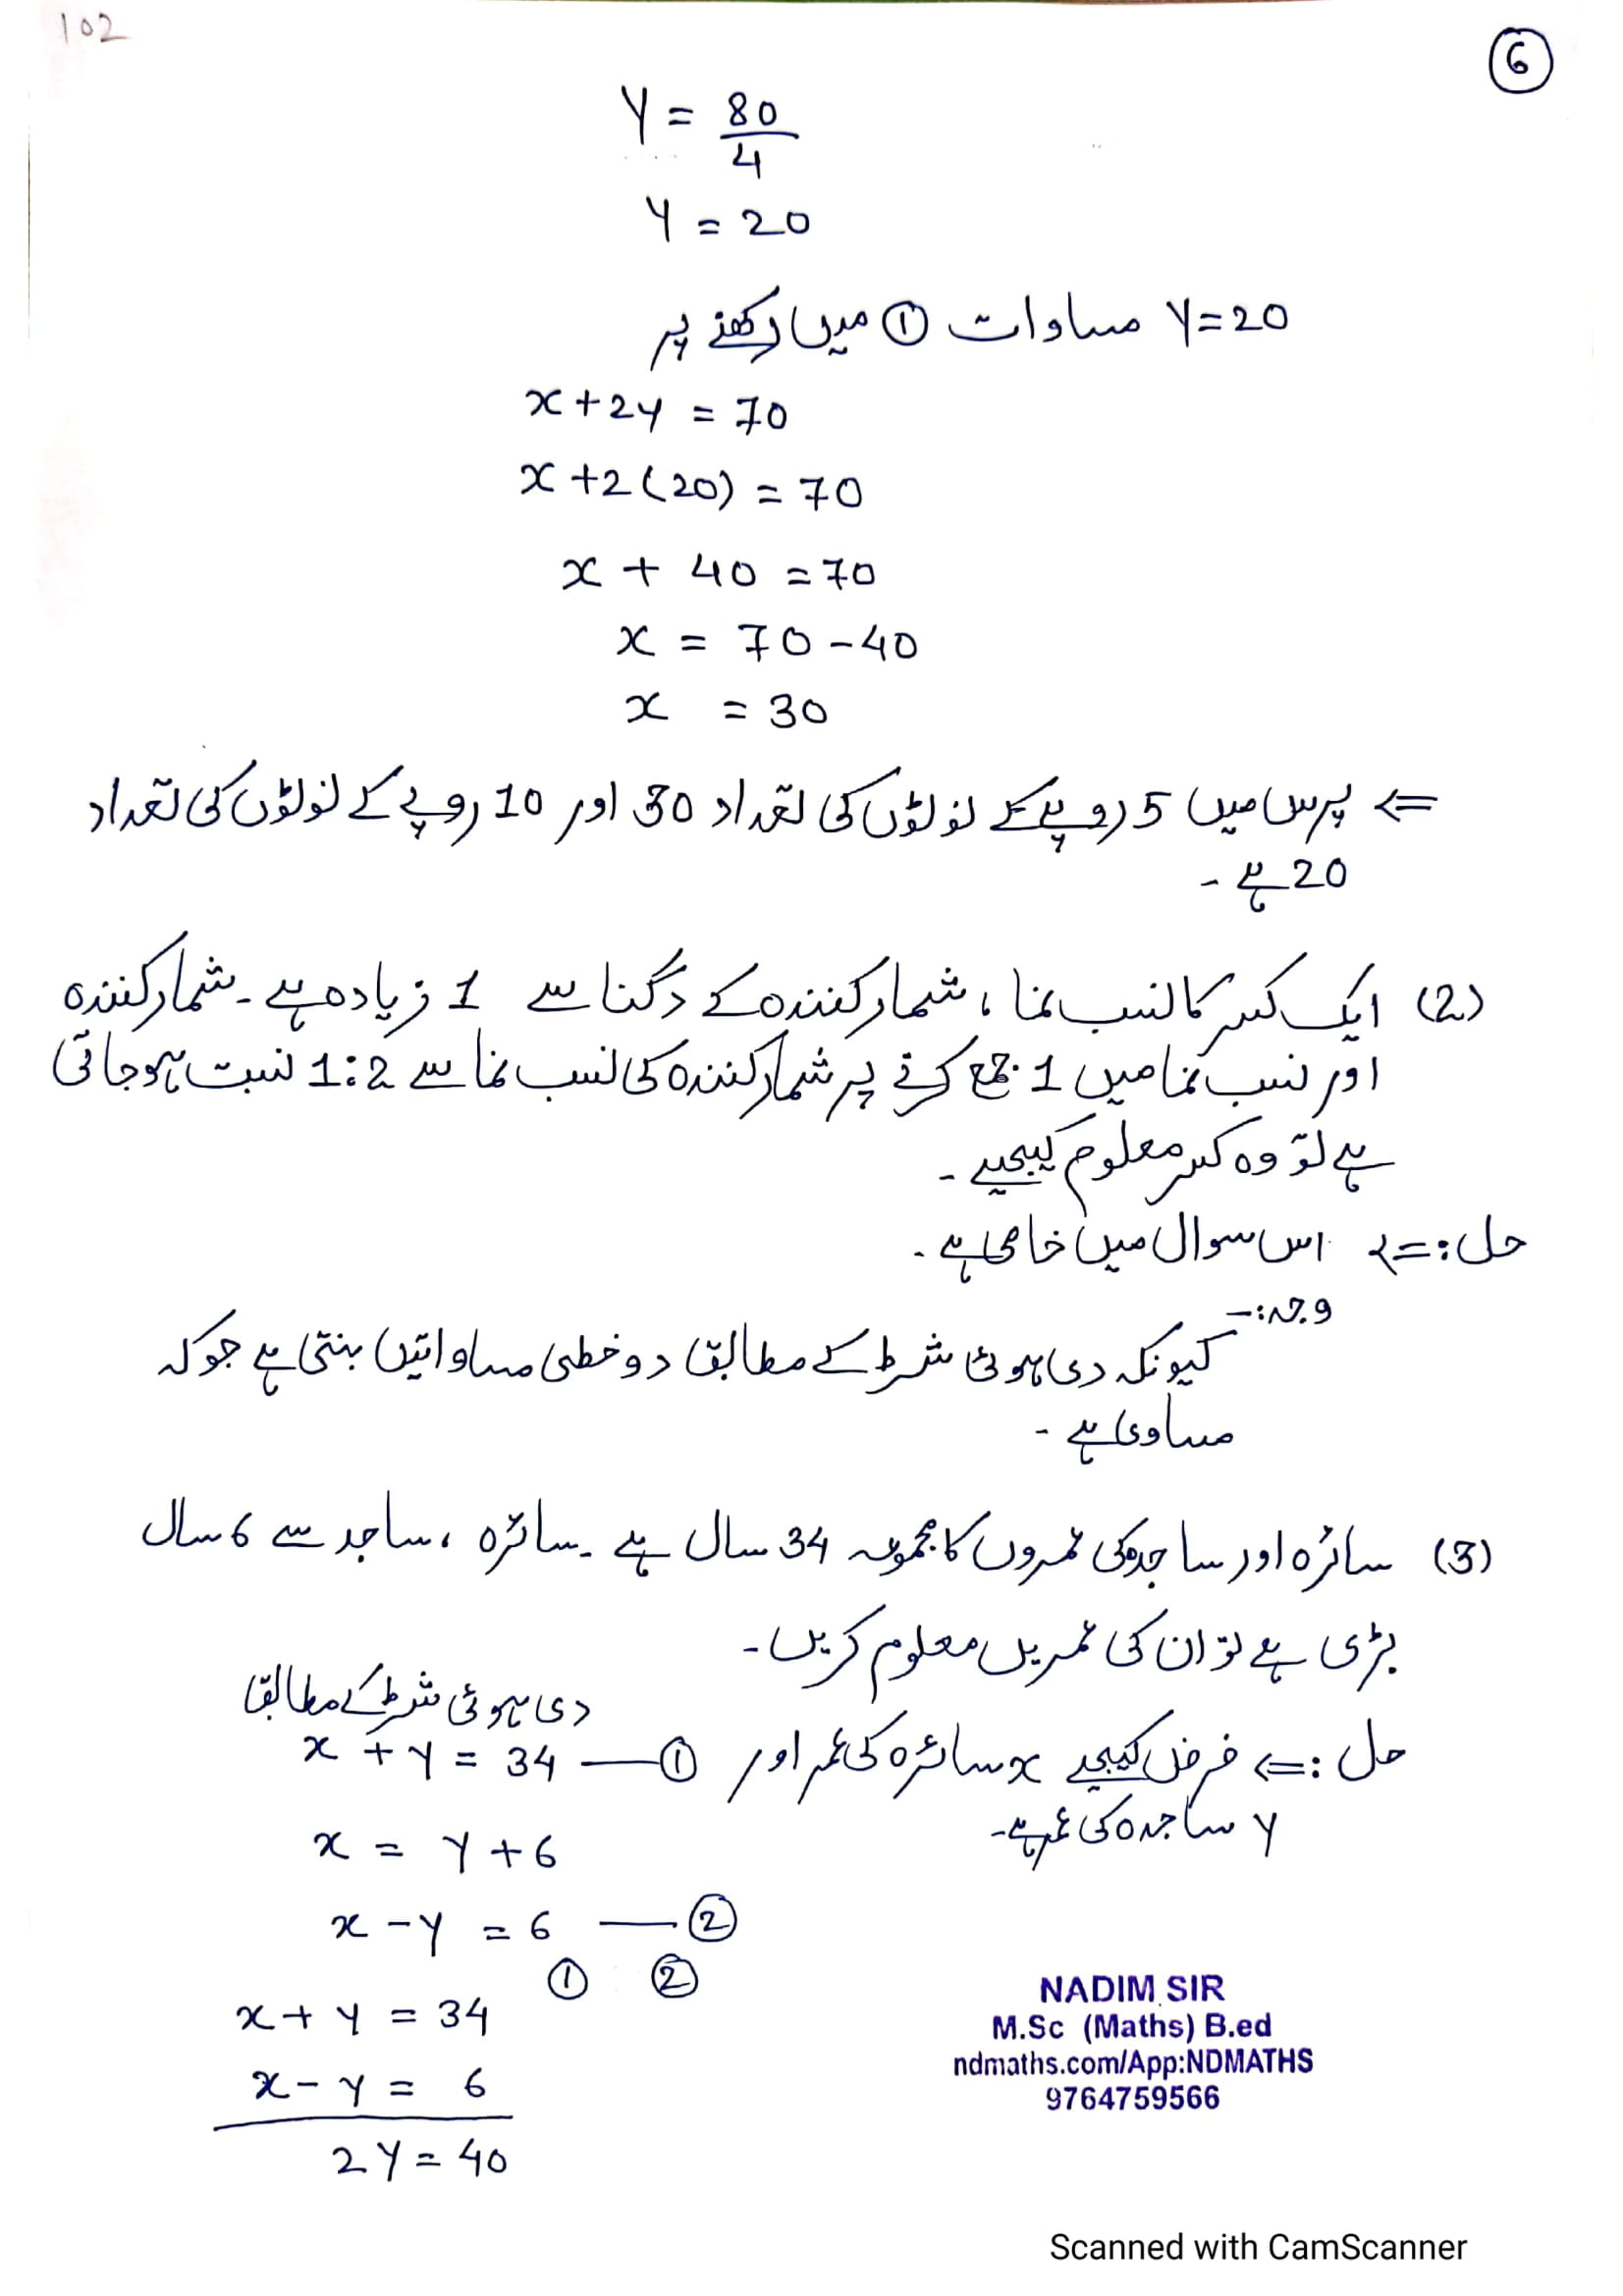 102
6
Y = 80/4
Y = 20
Y=20 مساوات ① میں رکھنے پر
x+2y = 70
x+2(20) = 70
x + 40 = 70
x = 70-40
x = 30
⇐ پرس میں 5 روپے کے نوٹوں کی تعداد 30 اور 10 روپے کے نوٹوں کی تعداد
20 ہے -
(2) ایک کسر کا نسب نما ، شمار کنندہ کے دگنا سے 1 زیادہ ہے - شمار کنندہ
اور نسب نما میں 1 جمع کرنے پر شمار کنندہ کی نسب نما سے 1:2 نسبت ہوجاتی
ہے تو وہ کسر معلوم کیجیے -
حل :⇐ اس سوال میں خامی ہے -
وجہ:-
کیونکہ دی ہوئی شرط کے مطابق دو خطی مساواتیں بنتی ہے جو کہ
مساوی ہے -
(3) سائرہ اور ساجدہ کی عمروں کا مجموعہ 34 سال ہے - سائرہ ، ساجد سے 6 سال
بڑی ہے تو ان کی عمریں معلوم کریں -
حل :⇐ فرض کیجیے x سائرہ کی عمر اور
y ساجدہ کی عمر ہے -
دی ہوئی شرط کے مطابق
x + y = 34 —①
x = y + 6
x - y = 6 —②
① ②
x + y = 34
x - y = 6
2y = 40
NADIM SIR
M.Sc (Maths) B.ed
ndmaths.com/App:NDMATHS
9764759566
Scanned with CamScanner